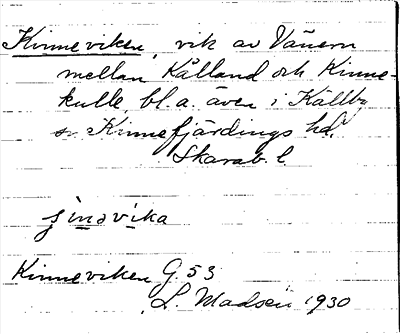 Kinneviken, vik av Vänern
mellan Kålland och Kinne-
kulle, bl.a. även i Källby
sn Kinnefjärdings hd.
Skarab. l.
Kinneviken G. 53
L. Madsén 1930